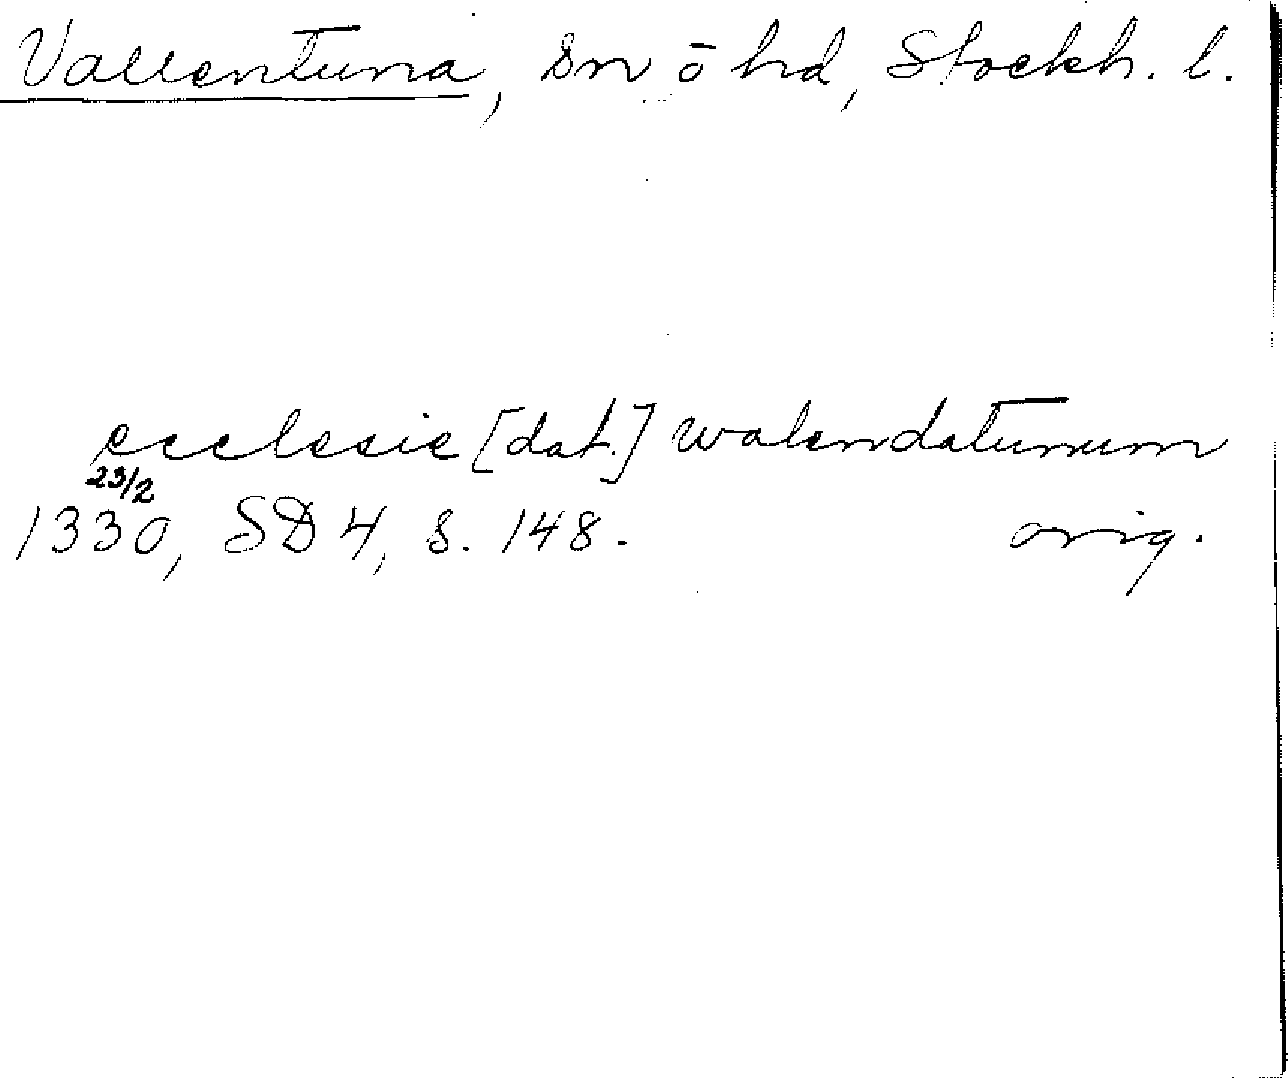 Vallentuna, sn ō hd, Stockh. l.
ecclesie [dat.] walendatunum
23/2
1330, SD 4, s. 148. orig.